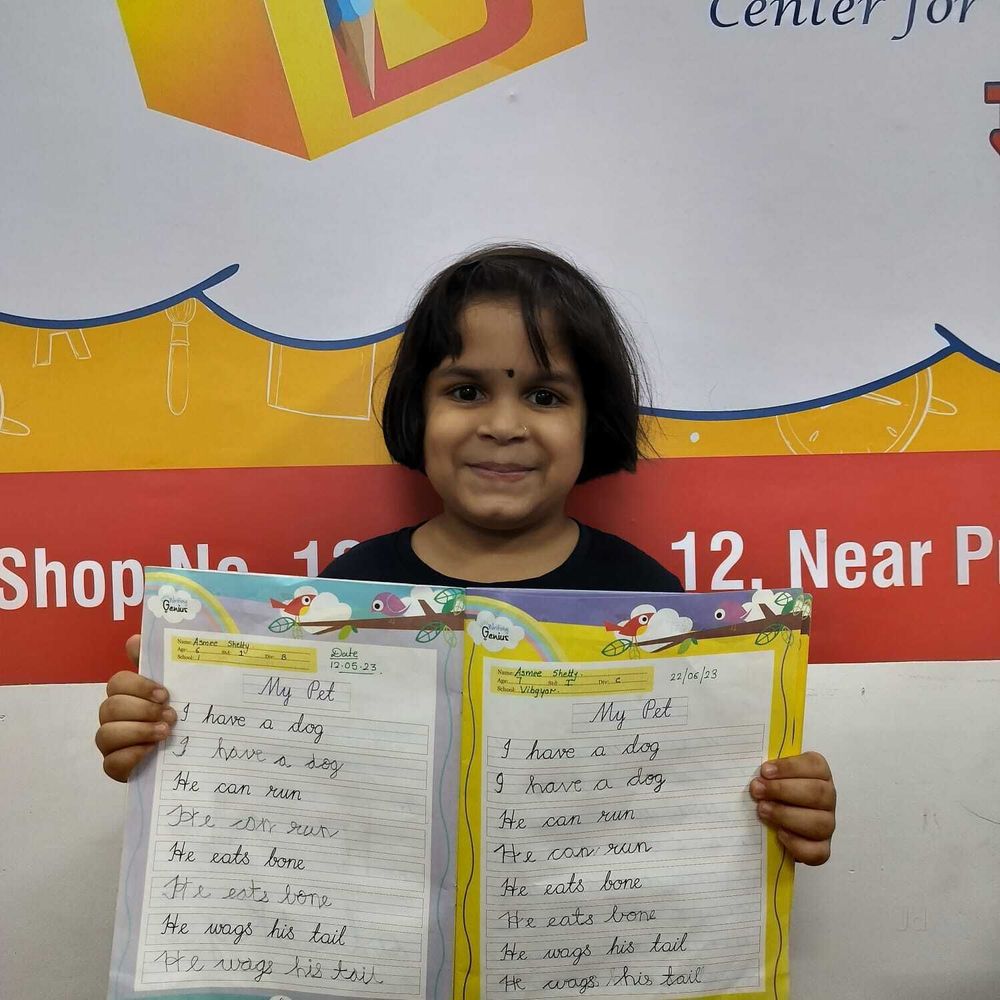 Center for
Shop No. 12
12. Near
Writing
Genius
Name: Asmee Shetty
Age: 6 Std: 1 Div: B
School: 1
Date
12.05.23.
My Pet
I have a dog
I have a dog
He can run
He can run
He eats bone
He eats bone
He wags his tail
He wags his tail
Writing
Genius
Name: Asmee Shetty.
Age: 7 Std: I Div: C
School: Vibgyor.
22/06/23
My Pet
I have a dog
I have a dog
He can run
He can run
He eats bone
He eats bone
He wags his tail
He wags his tail
Jd